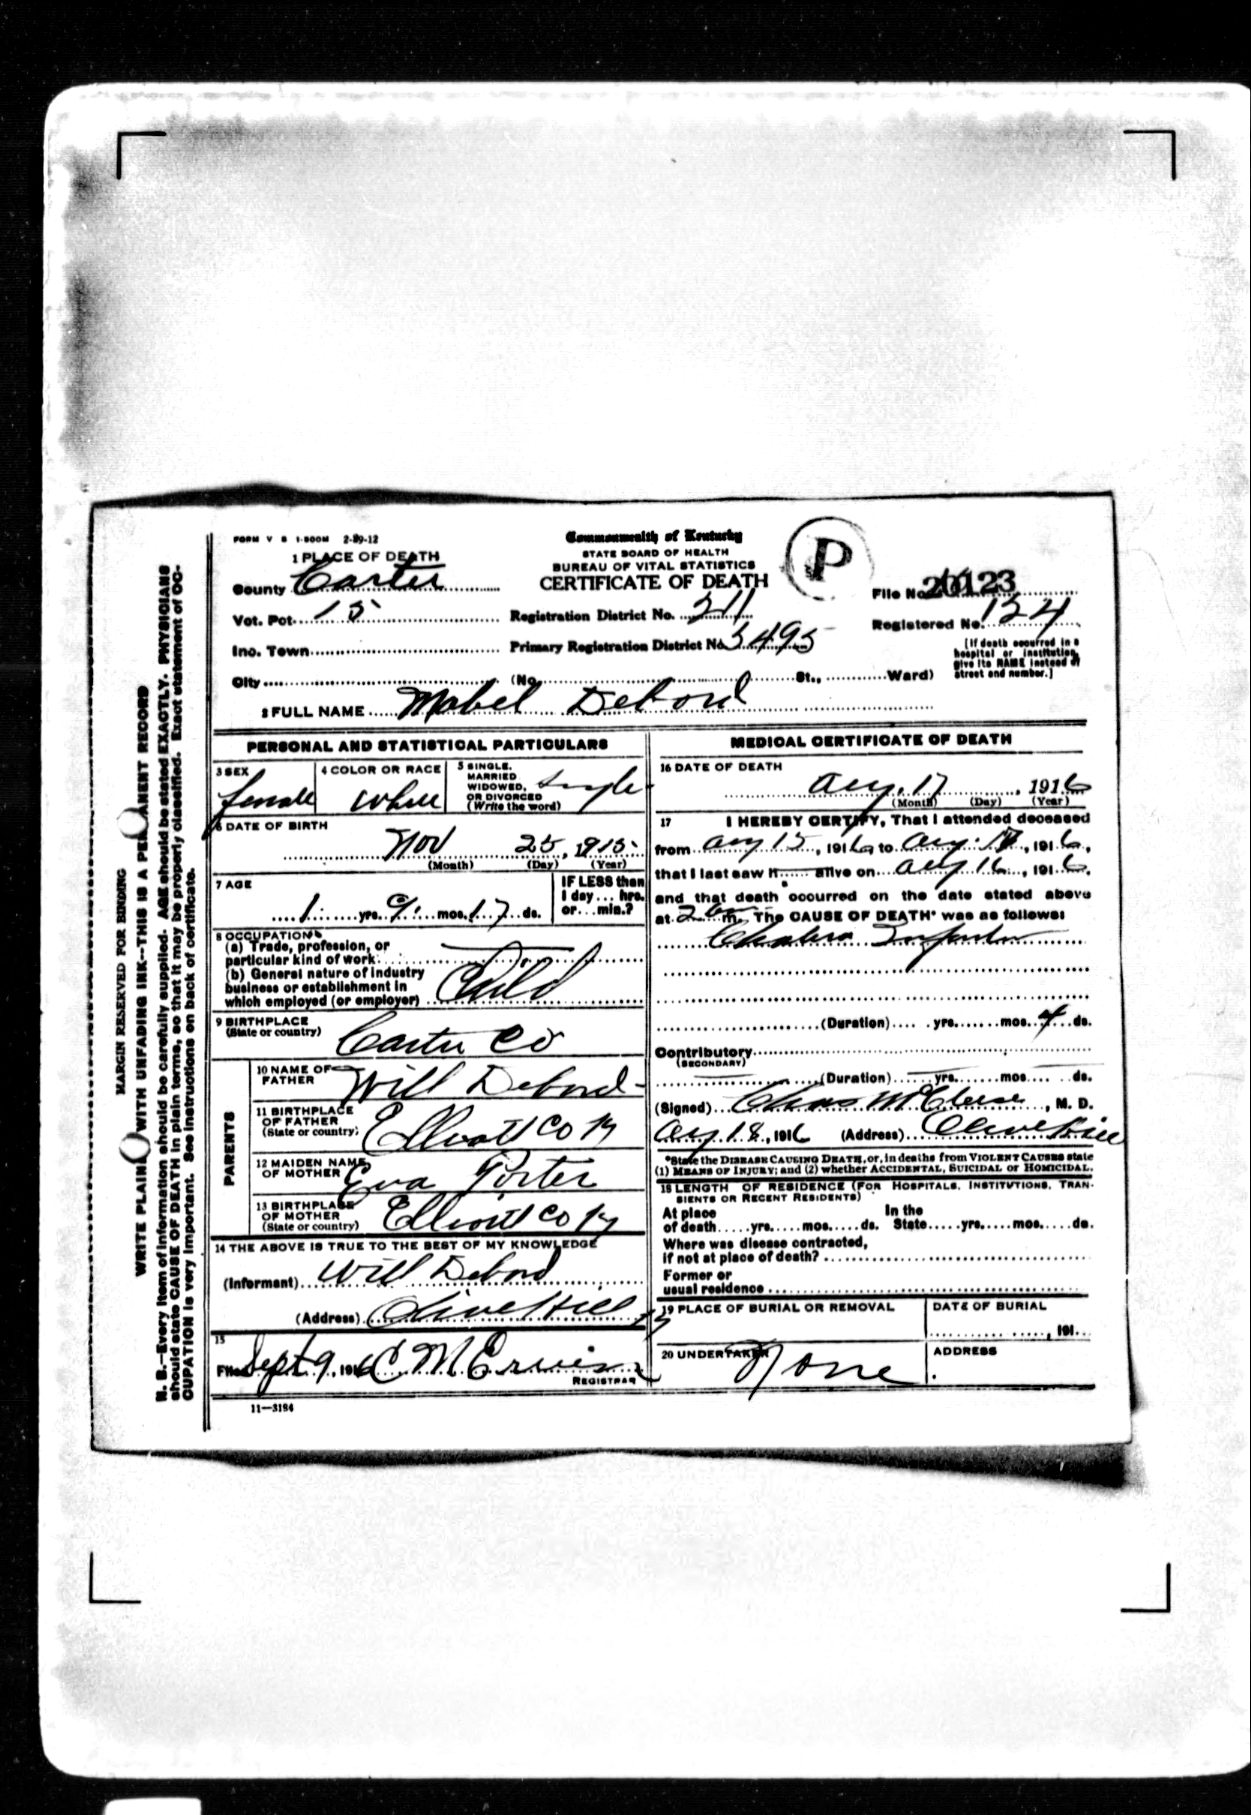 FORM V S 1-500M 2-29-12
Commonwealth of Kentucky
STATE BOARD OF HEALTH
BUREAU OF VITAL STATISTICS
CERTIFICATE OF DEATH
P
1 PLACE OF DEATH
County Carter
Vot. Pct. 15
Inc. Town
City (No. St., Ward)
Registration District No. 211
Primary Registration District No. 5495
File No. 20123
Registered No. 124
[If death occurred in a
hospital or institution,
give its NAME instead of
street and number.]
2 FULL NAME Mabel Debord
PERSONAL AND STATISTICAL PARTICULARS
3 SEX
female
4 COLOR OR RACE
White
5 SINGLE,
MARRIED
WIDOWED,
OR DIVORCED
(Write the word)
Single
6 DATE OF BIRTH
Nov 25, 1915
(Month) (Day) (Year)
7 AGE
1 yrs. 9 mos. 17 ds.
IF LESS than
1 day... hrs.
or... min.?
8 OCCUPATION
(a) Trade, profession, or
particular kind of work
(b) General nature of industry
business or establishment in
which employed (or employer) Child
9 BIRTHPLACE
(State or country) Carter Co
PARENTS
10 NAME OF
FATHER Will Debord
11 BIRTHPLACE
OF FATHER
(State or country) Elliott Co Ky
12 MAIDEN NAME
OF MOTHER Eva Porter
13 BIRTHPLACE
OF MOTHER
(State or country) Elliott Co Ky
14 THE ABOVE IS TRUE TO THE BEST OF MY KNOWLEDGE
(Informant) Will Debord
(Address) Olive Hill Ky
15
Filed Sept 9, 1916 C M Erwin
REGISTRAR
11-3184
MEDICAL CERTIFICATE OF DEATH
16 DATE OF DEATH
Aug. 17, 1916
(Month) (Day) (Year)
17 I HEREBY CERTIFY, That I attended deceased
from Aug 15, 1916 to Aug. 17, 1916,
that I last saw h alive on Aug 16, 1916,
and that death occurred on the date stated above
at 2 m. The CAUSE OF DEATH* was as follows:
Cholera Infantum
(Duration) yrs. mos. 4 ds.
Contributory
(SECONDARY)
(Duration) yrs. mos. ds.
(Signed) Chas McCleese, M. D.
Aug 18, 1916 (Address) Olive Hill
*State the DISEASE CAUSING DEATH, or, in deaths from VIOLENT CAUSES state
(1) MEANS OF INJURY; and (2) whether ACCIDENTAL, SUICIDAL or HOMICIDAL.
18 LENGTH OF RESIDENCE (FOR HOSPITALS, INSTITUTIONS, TRAN-
SIENTS OR RECENT RESIDENTS)
At place In the
of death yrs. mos. ds. State yrs. mos. ds.
Where was disease contracted,
if not at place of death?
Former or
usual residence
19 PLACE OF BURIAL OR REMOVAL
DATE OF BURIAL
, 191
20 UNDERTAKER
None
ADDRESS
MARGIN RESERVED FOR BINDING
WRITE PLAINLY WITH UNFADING INK--THIS IS A PERMANENT RECORD
N. B.--Every item of information should be carefully supplied. AGE should be stated EXACTLY. PHYSICIANS
should state CAUSE OF DEATH in plain terms, so that it may be properly classified. Exact statement of OC-
CUPATION is very important. See instructions on back of certificate.